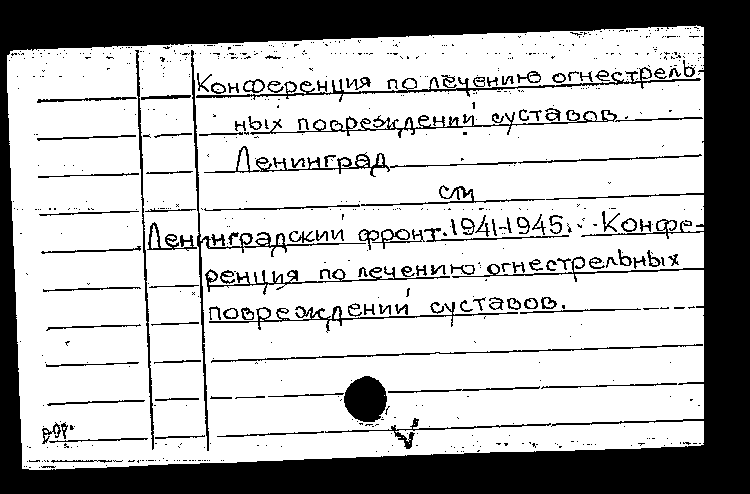 Конференция по лечению огнестрель-
ных повреждений суставов.
Ленинград
см
Ленинградский фронт. 1941-1945. Конфе-
ренция по лечению огнестрельных
повреждений суставов.